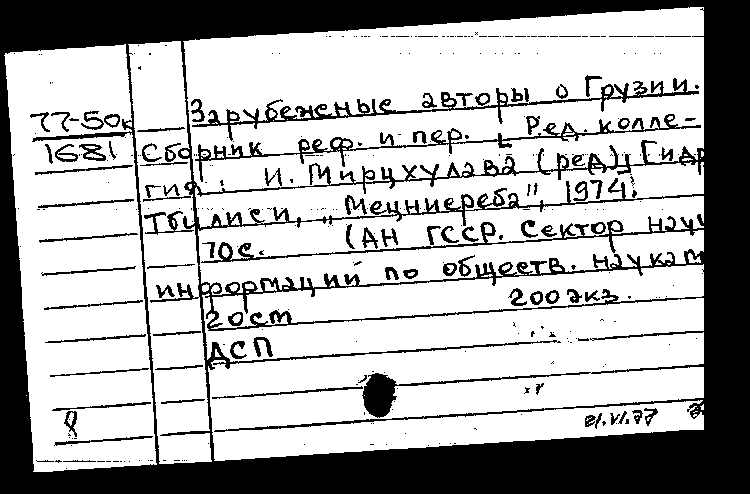 Зарубежные авторы о Грузии.
77-50к
1681 Сборник реф. и пер. [Ред. колле-
гия: И. Мирцхулава (ред) и др
Тбилиси, „Мецниереба", 1974.
70с. (АН ГССР. Сектор науч
информации по обществ. наукам
20см 200экз.
ДСП
8 21.VI.77